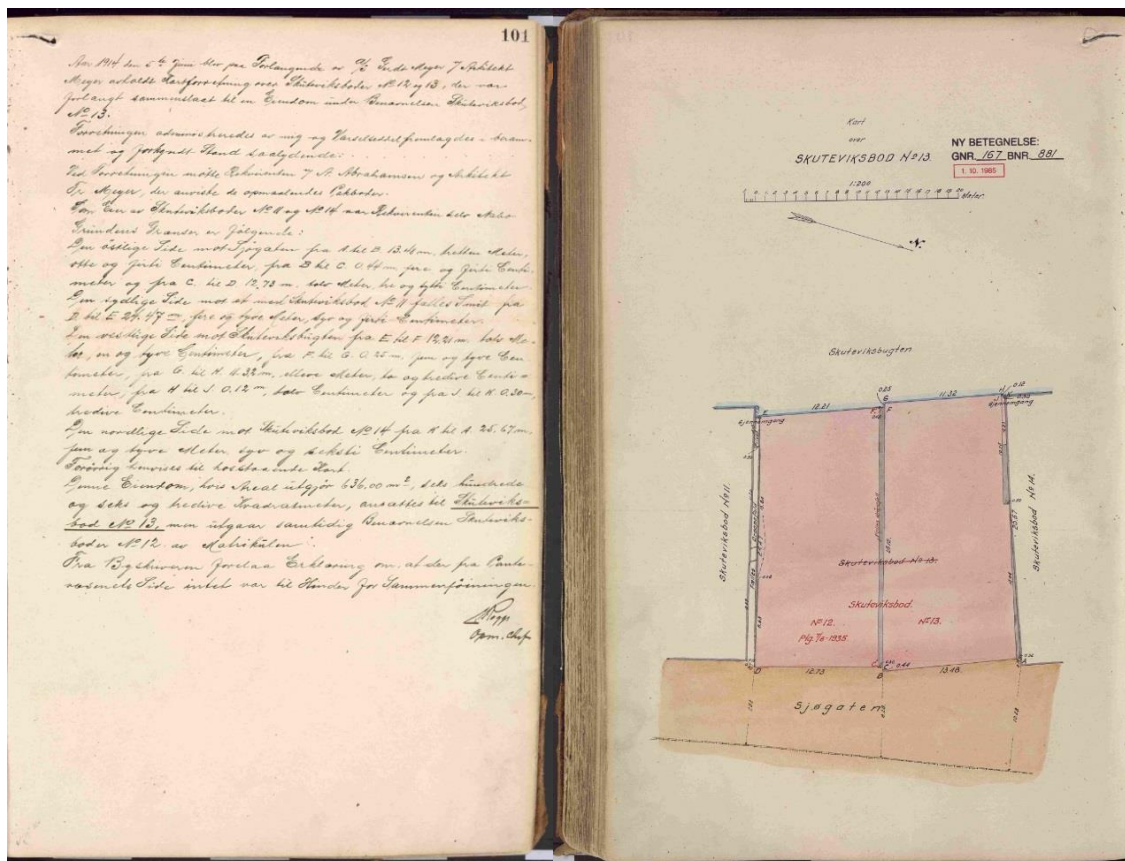 101
Aar 1914 den 5te Juni blev paa Forlangende av A/S Fredr. Meyer 7 Arkitekt
Meyer avholdt Kartforretning over Skuteviksboder No 12 og 13, der var
forlangt sammenslaat til en Eiendom under Benævnelsen Skuteviksbod
No 13.
Forretningen administreredes av mig og Varselseddel fremlagdes
met og forkyndt Stand saalydende:
Ved Forretningen møtte Rekvirenten 7 N. Abrahamsen og Arkitekt
Fr. Meyer, der anviste de opmaalendes Pakboder.
Som Eier av Skuteviksboder No 11 og No 14 var Rekvirenten selv Nabo
Grundens Grænser er følgende:
Den østlige Side mot Sjøgaten fra A til B. 13.48 m, tretten Meter,
otte og firti Centimeter, fra B til C. 0.44 m fire og firti Centi-
meter og fra C. til D. 12,73 m. tolv Meter, tre og sytti Centimeter.
Den sydlige Side mot et med Skuteviksbod No 11 fælles Smit fra
D. til E 24.47 m, fire og tyve Meter, syv og firti Centimeter.
Den vestlige Side mot Skuteviksbugten fra E til F 12,21 m. tolv Me-
ter, en og tyve Centimeter, fra F. til G. 0.25 m, fem og tyve Cen-
timeter, fra G. til H. 11.32 m, elleve Meter, to og tredive Centi-
meter, fra H til J. 0.12 m, tolv Centimeter og fra J. til K. 0.30 m,
tredive Centimeter.
Den nordlige Side mot Skuteviksbod No 14 fra K til A. 25.67 m.
fem og tyve Meter, syv og seksti Centimeter.
Forøvrig henvises til hosstaaende Kart.
Denne Eiendom, hvis Areal utgjør 636.00 m², seks hundrede
og seks og tredive Kvadratmeter, ansattes til Skuteviks-
bod No 13, men utgaar samtidig Benævnelsen Skuteviks-
boder No 12 av Matrikulen.
Fra Byskriveren forelaa Erklæring om, at der fra Pante-
væsenets Side intet var til Hinder for Sammenføiningen
Opm. Chef
Kort
over
SKUTEVIKSBOD No 13.
NY BETEGNELSE:
GNR. 167 BNR. 881
1. 10. 1985
1:200
Meter.
N.
Skuteviksbugten
0.25
G
F
F
12.21
11.32
0.12
E
Gjennemgang
Gjennemgang
Skuteviksbod No 11.
Skuteviksbod No 14.
25.67
Skuteviksbod No 13.
Skuteviksbod.
No 12.
No 13.
Plg. 7/6-1935
D
12.73
C
B
0.44
13.48
A
Sjøgaten